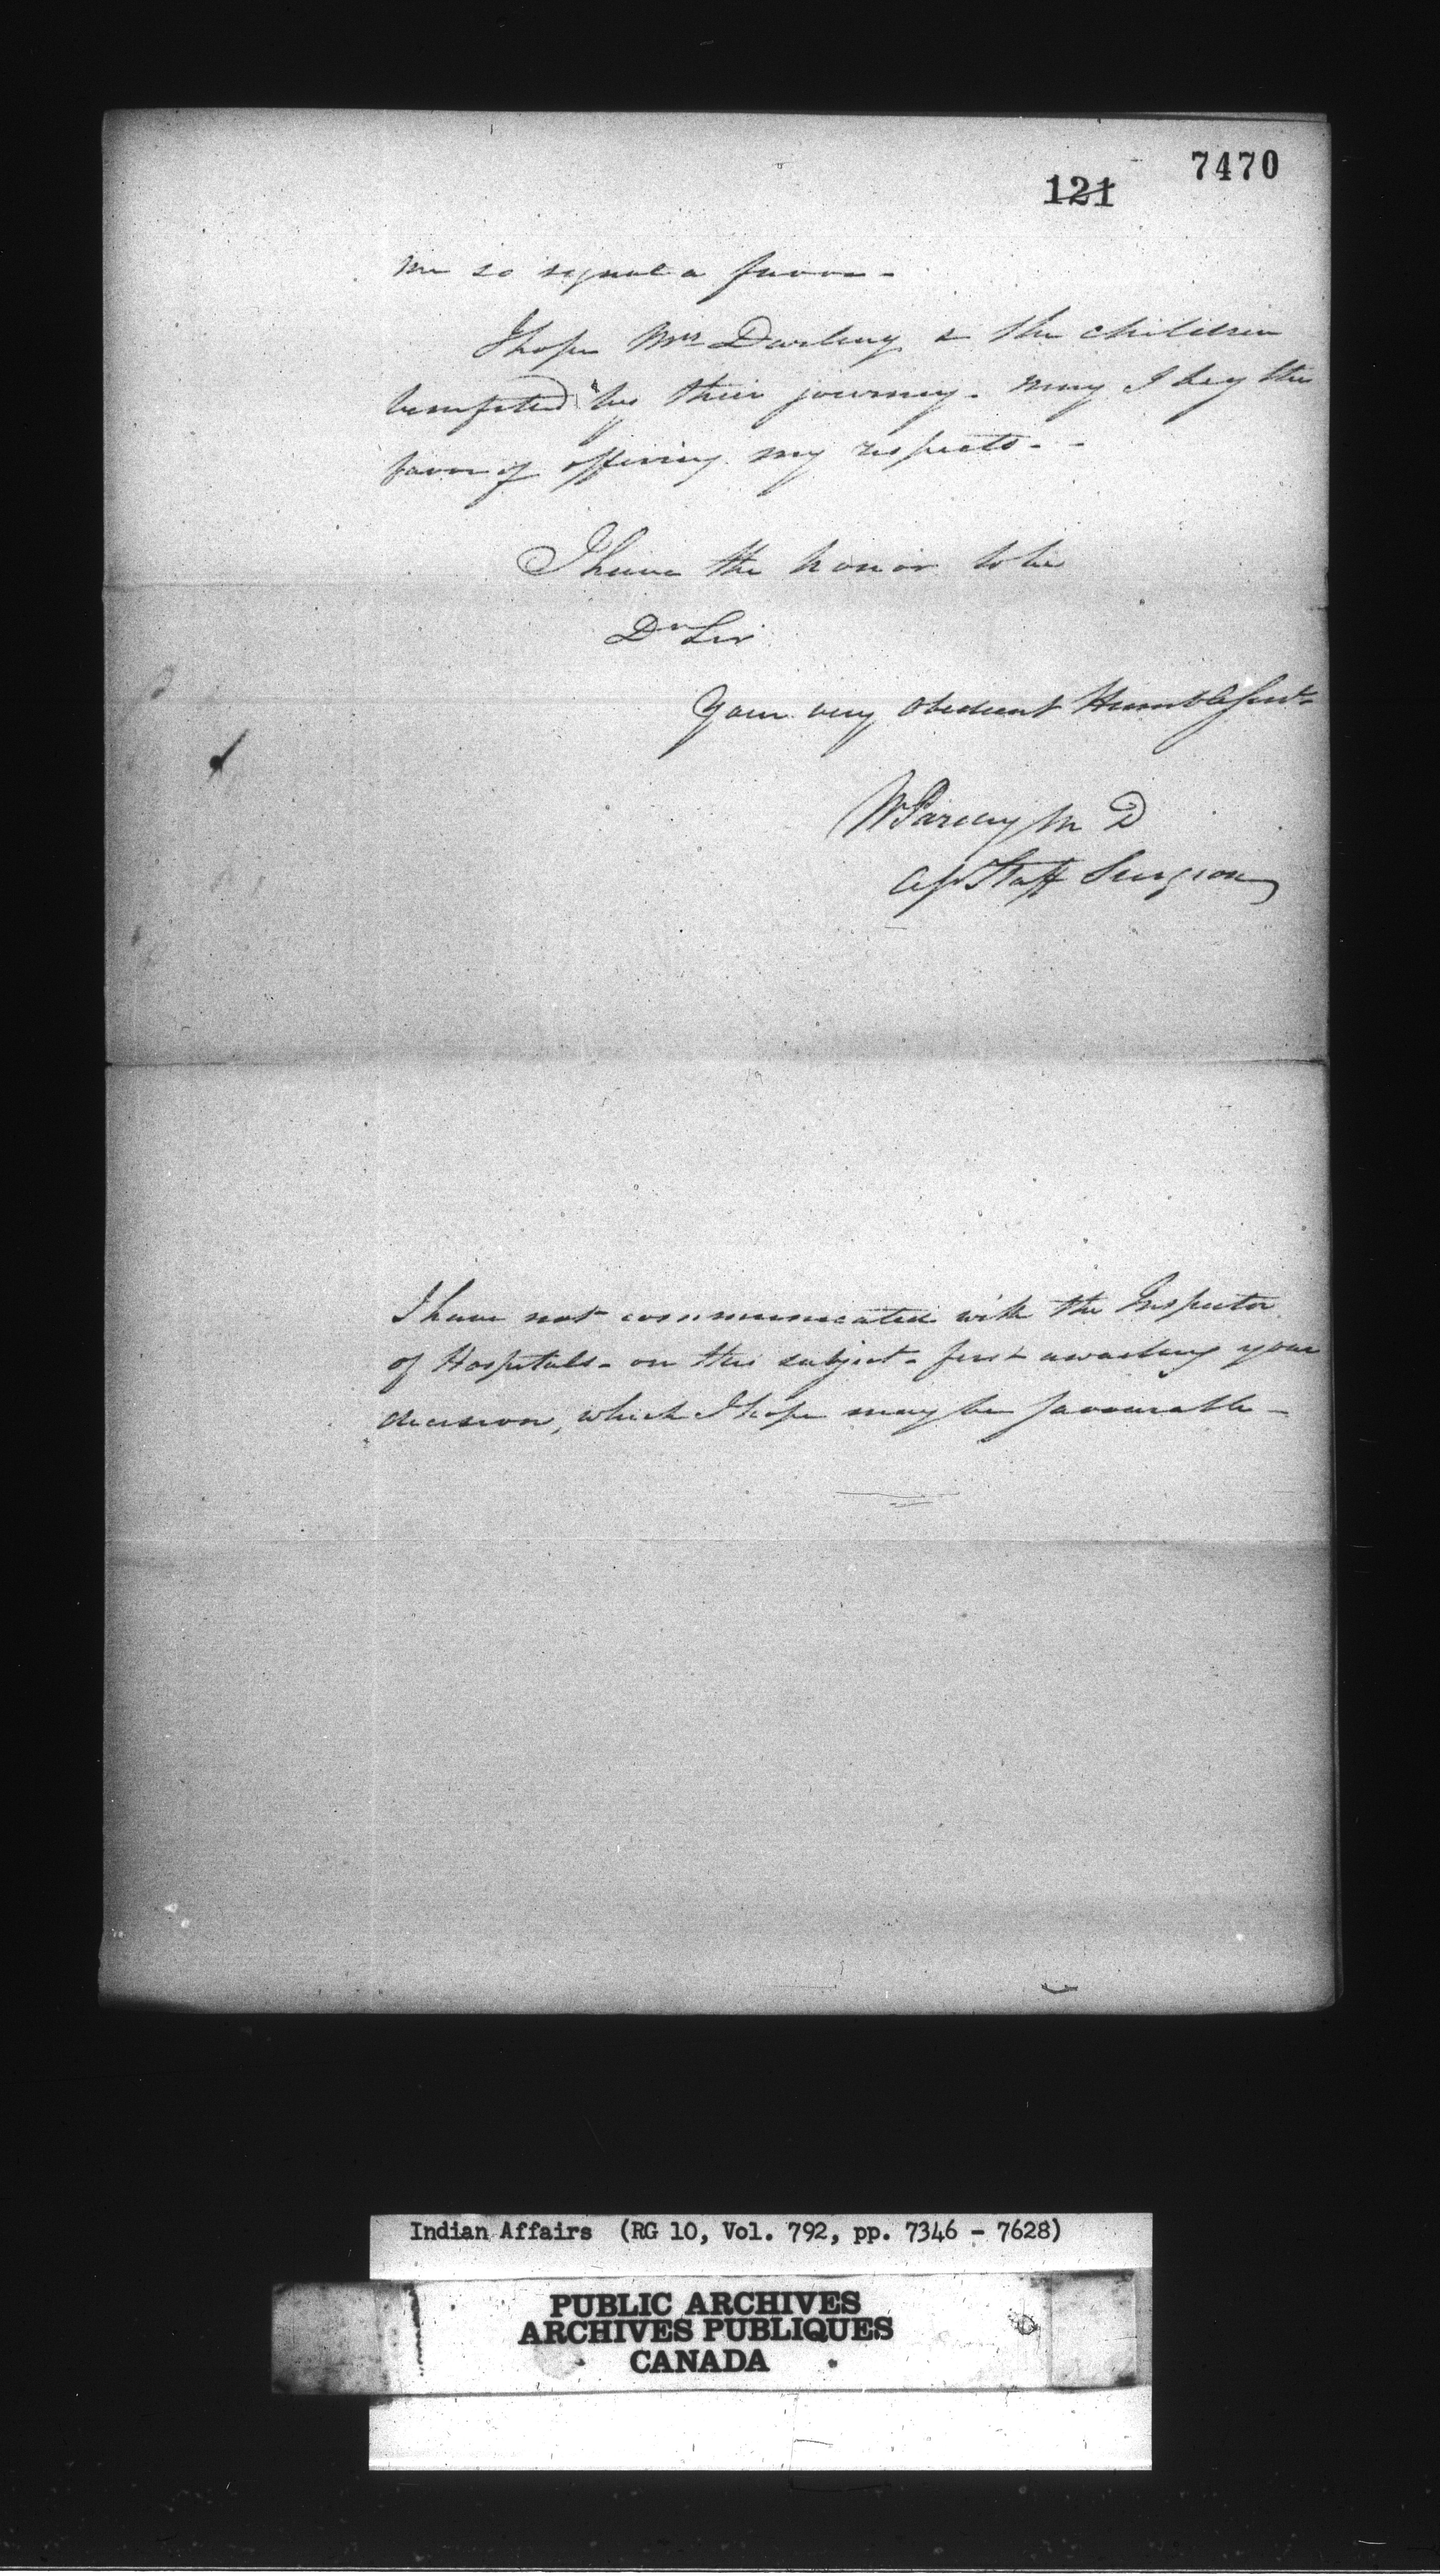 7470
121
me so signal a favor -
I hope Mrs Darling & the children
benefited by their journey - may I beg the
favor of offering my respects - -
I have the honor to be
Dr Sir
Your very obedient Humble Servt
M D
Staff Surgeon
I have not communicated with the Inspector
of Hospitals - on this subject - first awaiting your
decision, which I hope may be favourable -
Indian Affairs (RG 10, Vol. 792, pp. 7346 - 7628)
PUBLIC ARCHIVES
ARCHIVES PUBLIQUES
CANADA